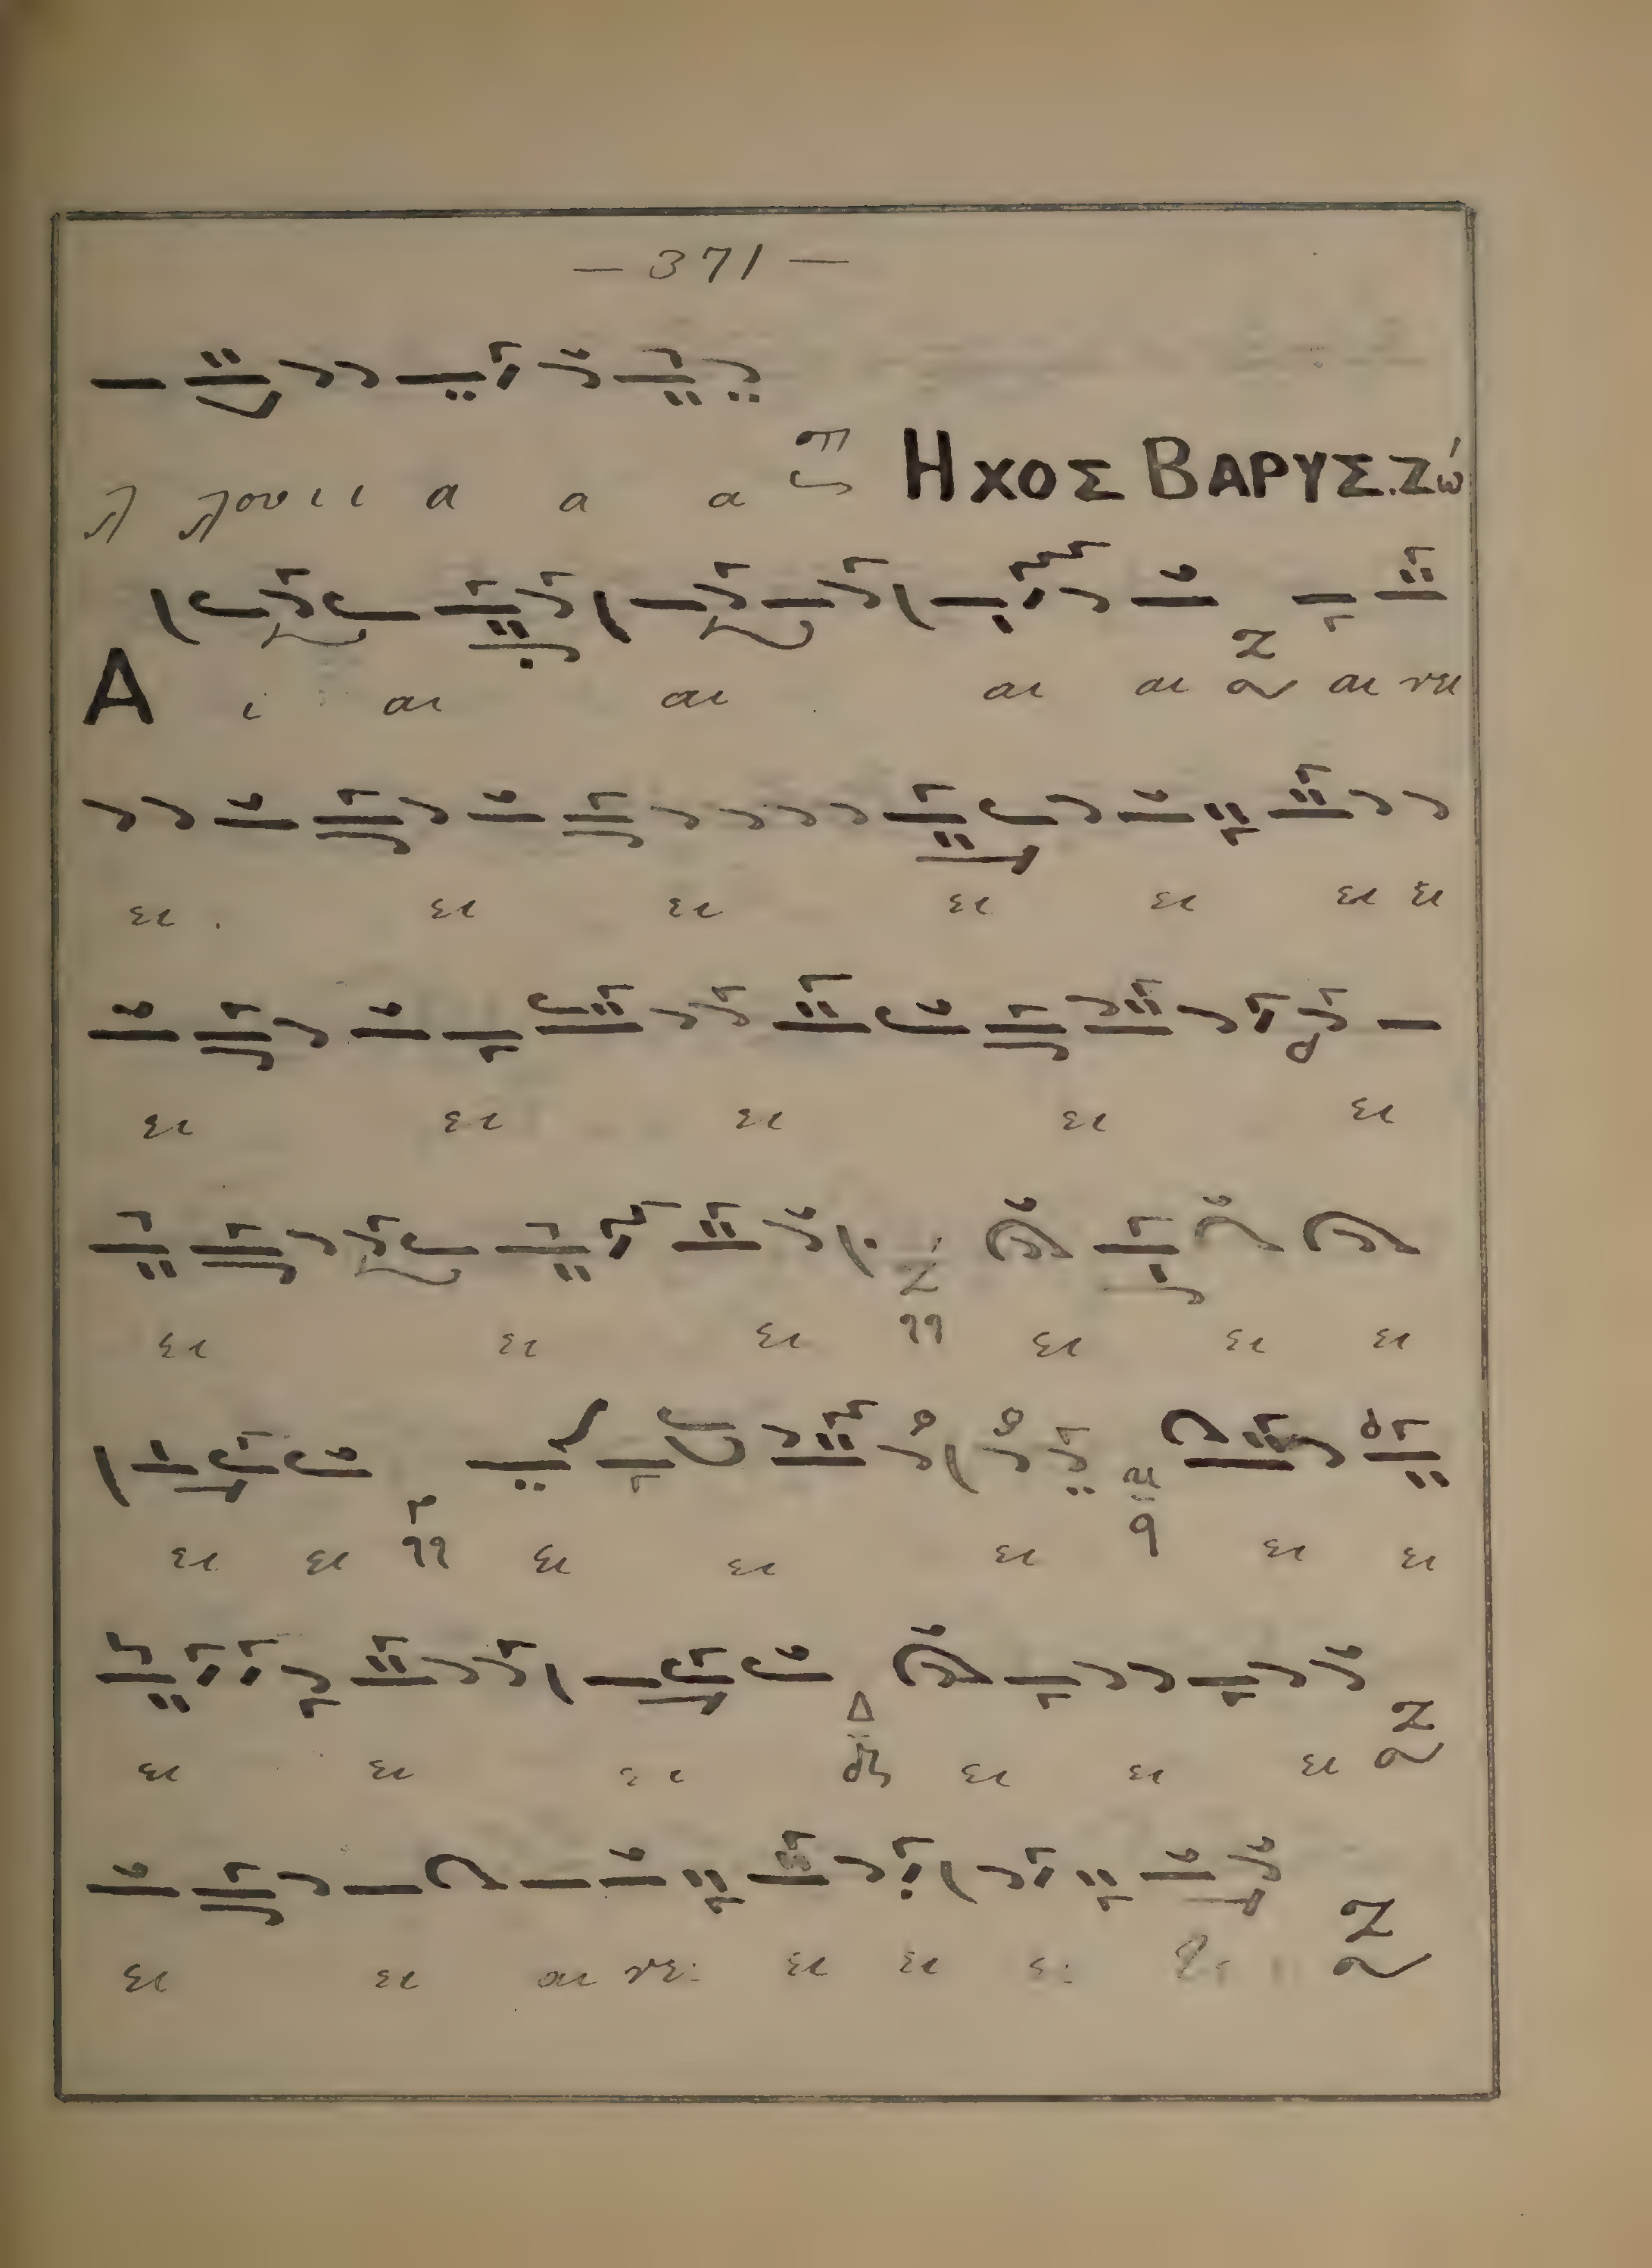 — 371 —
λ λου ι ι α α α ΗΧΟΣ ΒΑΡΥΣ. Ζώ
Α ι αι αι αι αι Ζ αι νει
ει ει ει ει ει ει ει
ει ει ει ει ει
ει ει ει Ζ ει ει ει
ει ει ει ει ει ει ει
ει ει ει Δ ει ει ει Ζ
ει ει αι νε ει ει Ζ